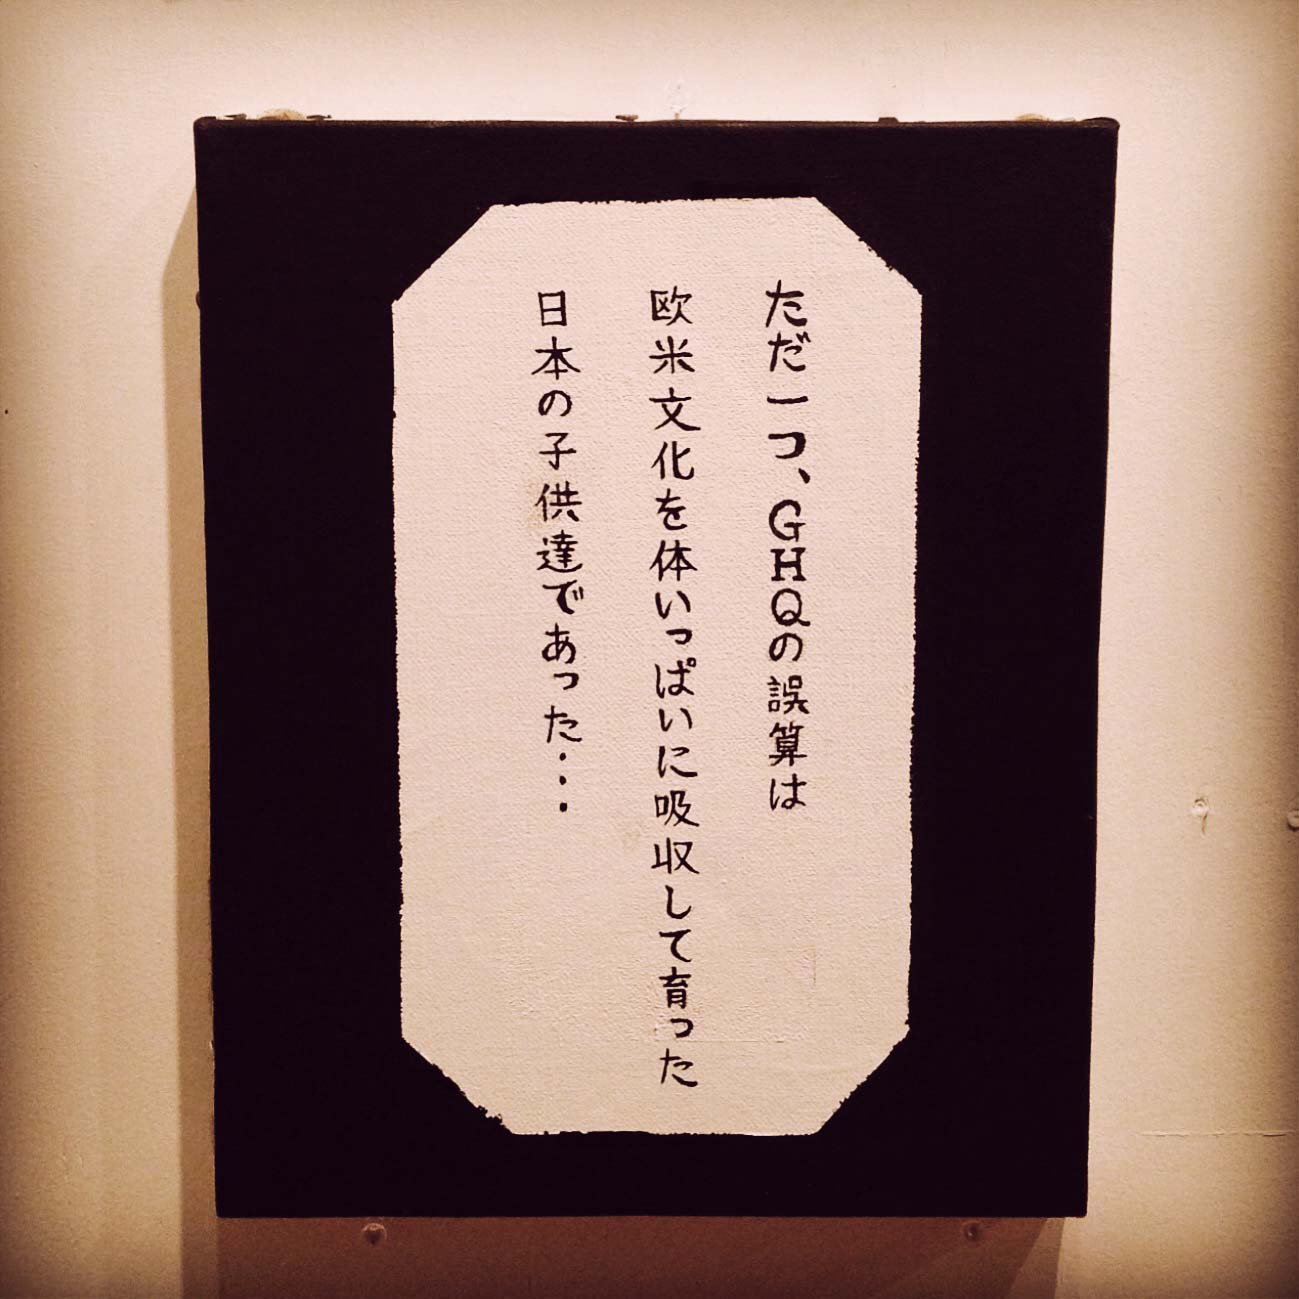 ただ一つ、GHQの誤算は
欧米文化を体いっぱいに吸収して育った
日本の子供達であった・・・